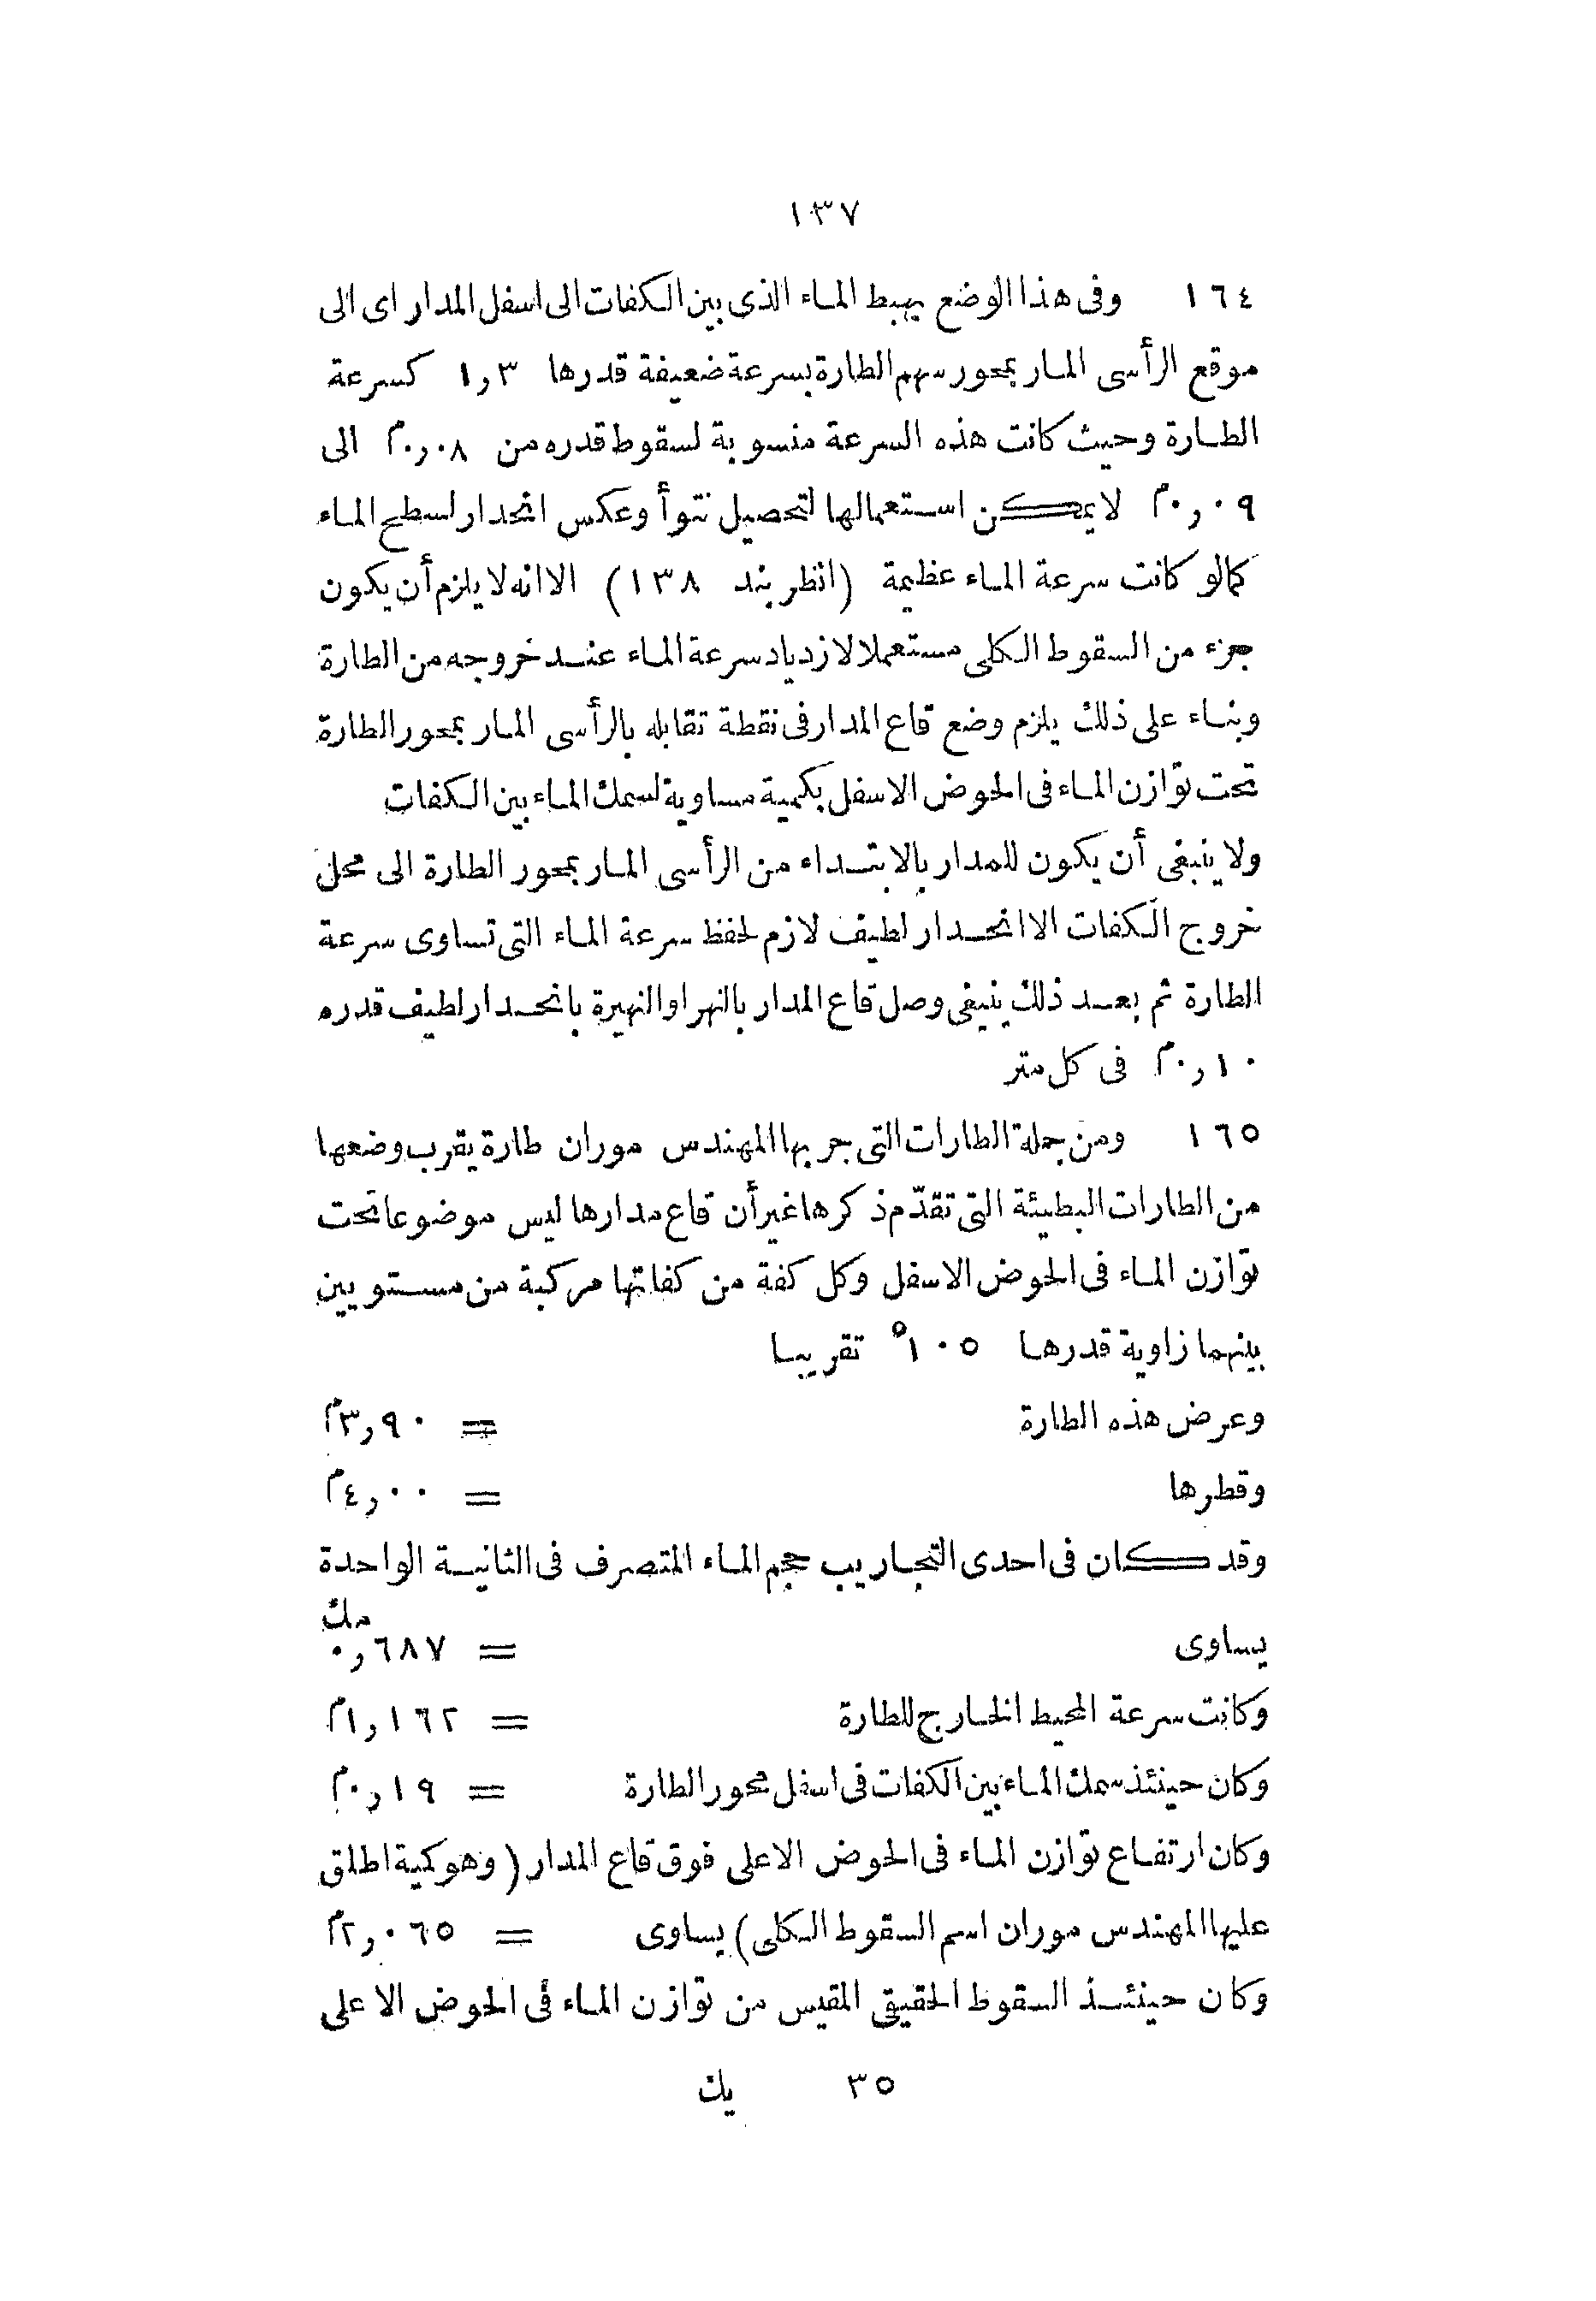 ١٣٧
١٦٤ وفى هذا الوضع يهبط الماء الذى بين الكفات الى اسفل المدار اى الى
موقع الرأسى المار بمحور سهم الطارة بسرعة ضعيفة قدرها ١٫٣ كسرعة
الطارة وحيث كانت هذه السرعة منسوبة لسقوط قدره من ٠٫٠٨م الى
٠٫٠٩م لا يمكن استعمالها لتحصيل نتوأ وعكس انحدار لسطح الماء
كمالو كانت سرعة الماء عظيمة (انظر بند ١٣٨) الا انه لا يلزم أن يكون
جزء من السقوط الكلى مستعملا لازدياد سرعة الماء عند خروجه من الطارة
وبناء على ذلك يلزم وضع قاع المدار فى نقطة تقابله بالرأسى المار بمحور الطارة
تحت توازن الماء فى الحوض الاسفل بكمية مساوية لسمك الماء بين الكفات
ولا ينبغى أن يكون للمدار بالابتداء من الرأسى المار بمحور الطارة الى محل
خروج الكفات الا انحدار لطيف لازم لحفظ سرعة الماء التى تساوى سرعة
الطارة ثم بعد ذلك ينبغى وصل قاع المدار بالنهر او النهيرة بانحدار لطيف قدره
٠٫١٠م فى كل متر
١٦٥ ومن جملة الطارات التى جربها المهندس موران طارة يقرب وضعها
من الطارات البطيئة التى تقدّم ذكرها غير أن قاع مدارها ليس موضوعا تحت
توازن الماء فى الحوض الاسفل وكل كفة من كفاتها مركبة من مستويين
بينهما زاوية قدرها ١٠٥° تقريبا
وعرض هذه الطارة = ٣٫٩٠م
وقطرها = ٤٫٠٠م
وقد كان فى احدى التجاريب حجم الماء المتصرف فى الثانية الواحدة
يساوى = ٠٫٦٨٧ مك
وكانت سرعة المحيط الخارج للطارة = ١٫١٦٢م
وكان حينئذ سمك الماء بين الكفات فى اسفل محور الطارة = ٠٫١٩م
وكان ارتفاع توازن الماء فى الحوض الاعلى فوق قاع المدار (وهو كمية اطلق
عليها المهندس موران اسم السقوط الكلى) يساوى = ٢٫٠٦٥م
وكان حينئذ السقوط الحقيقى المقيس من توازن الماء فى الحوض الاعلى
٣٥ يك